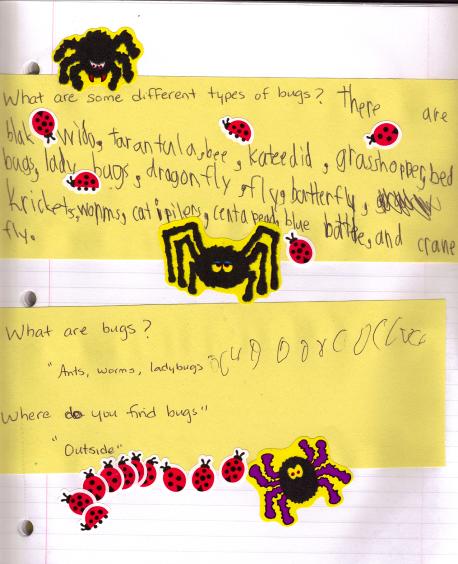 What are some different types of bugs? There are
blak wido, tarantulas, bee, kateedid, grasshopper, bed
bugs, lady bugs, dragonfly, fly, butterfly,
krickets, worms, cat ipilers, centapead, blue battle, and crane
fly.
What are bugs?
"Ants, worms, ladybugs
Where do you find bugs"
"Outside"